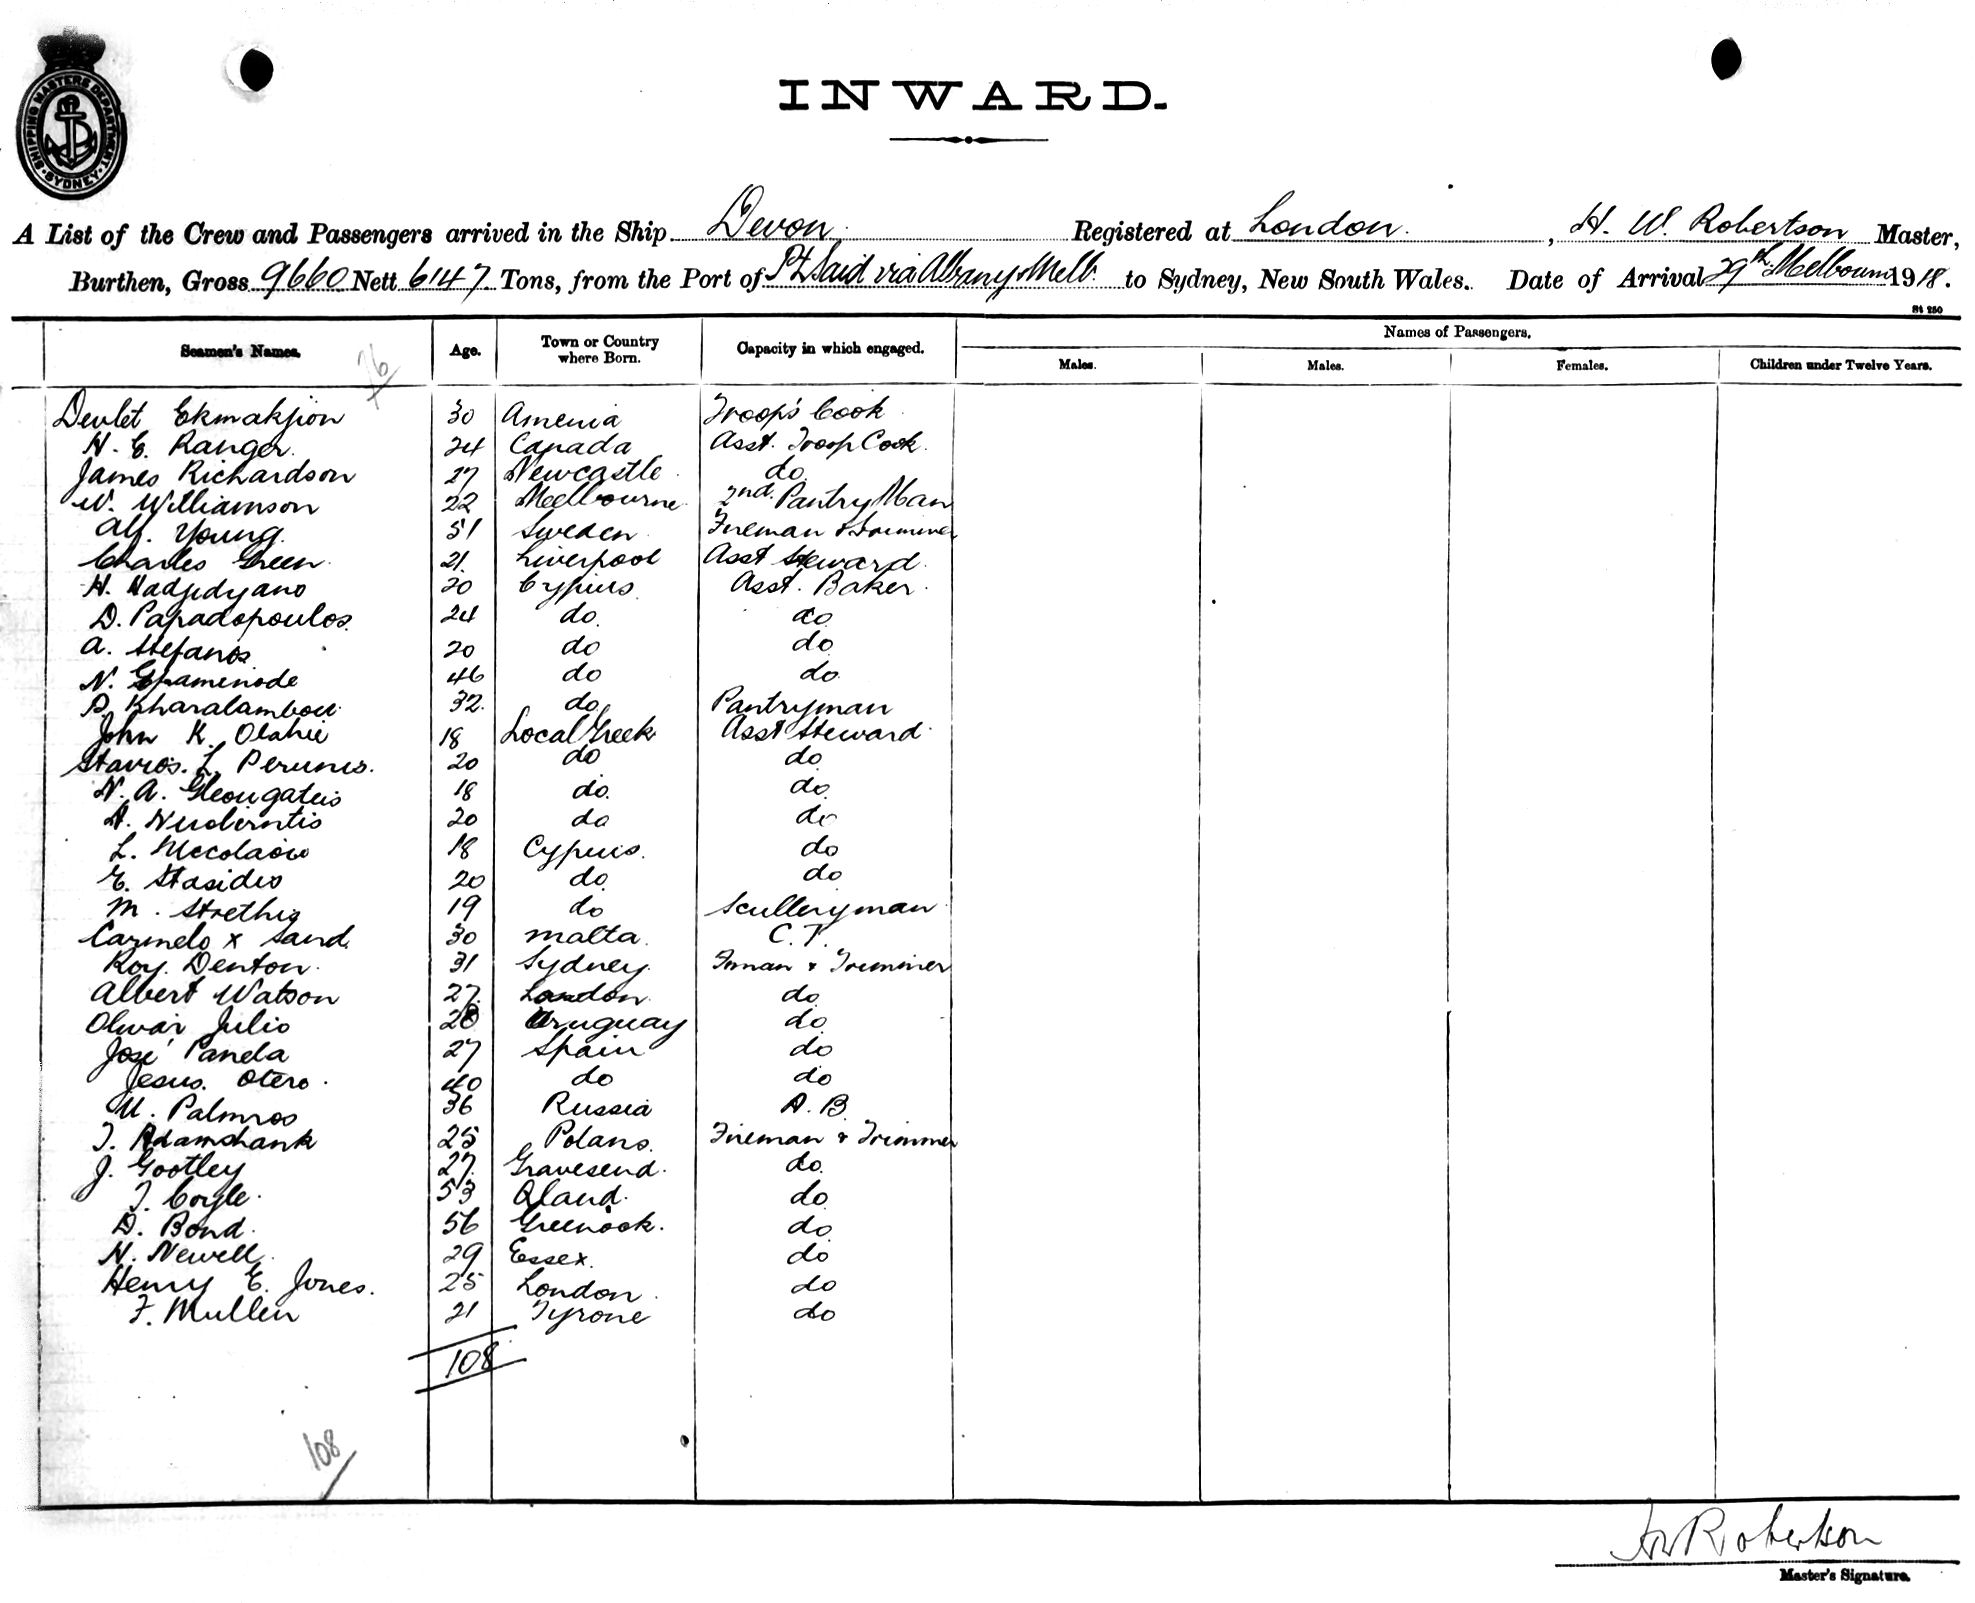 SHIPPING MASTERS DEPARTMENT SYDNEY
INWARD.
A List of the Crew and Passengers arrived in the Ship Devon. Registered at London. , H. W. Robertson Master,
Burthen, Gross 9660 Nett 6147 Tons, from the Port of Pt Said via Albany & Melb. to Sydney, New South Wales. Date of Arrival 29th Melbourne 1918.
St 250
Seamen's Names. 76 Age. Town or Country where Born. Capacity in which engaged. Names of Passengers.
Males. Males. Females. Children under Twelve Years.
Devlet Ekmakjion 30 Amenia Troop's Cook
H. E. Ranger. 24 Canada Asst. Troop Cook.
James Richardson 27 Newcastle. do
W. Williamson 22 Melbourne 2nd. Pantry Man
Alf. Young. 51 Sweden Fireman & Trimmer
Charles Green. 21. Liverpool Asst Steward.
H. Hadjidyano 20 Cyprus Asst. Baker.
D. Papadopoulos. 24 do. do
A. Stefanos 20 do do
N. Epaminode 46 do do
P. Kharalambou. 32. do Pantryman
John K. Olahie 18 Local Greek Asst Steward.
Stavros. L. Perunis. 20 do do
N. A. 18 do. do
A. 20 do do
L. Niccolaou 18 Cyprus. do
E. Stasides 20 do. do
M. Strethis 19 do Sculleryman
Carmelo x Sand. 30 Malta. C. T.
Roy. Denton. 31 Sydney. Firman & Trimmer
Albert Watson 27. London. do
Olivar Julio 28 Uruguay do
José Panela 27 Spain do
Jesus. Otero. 40 do do
U. Palmros 36 Russia A. B.
T. Adamshank 25 Polans. Fireman & Trimmer
J. Gootley 27. Gravesend. do.
T. Coyle. 53 Oland. do
D. Bond. 56 Greenock. do
H. Newell. 29 Essex. do
Henry E. Jones. 25 London. do
F. Mullen 21 Tyrone do
108
108
HW Robertson
Master's Signature.